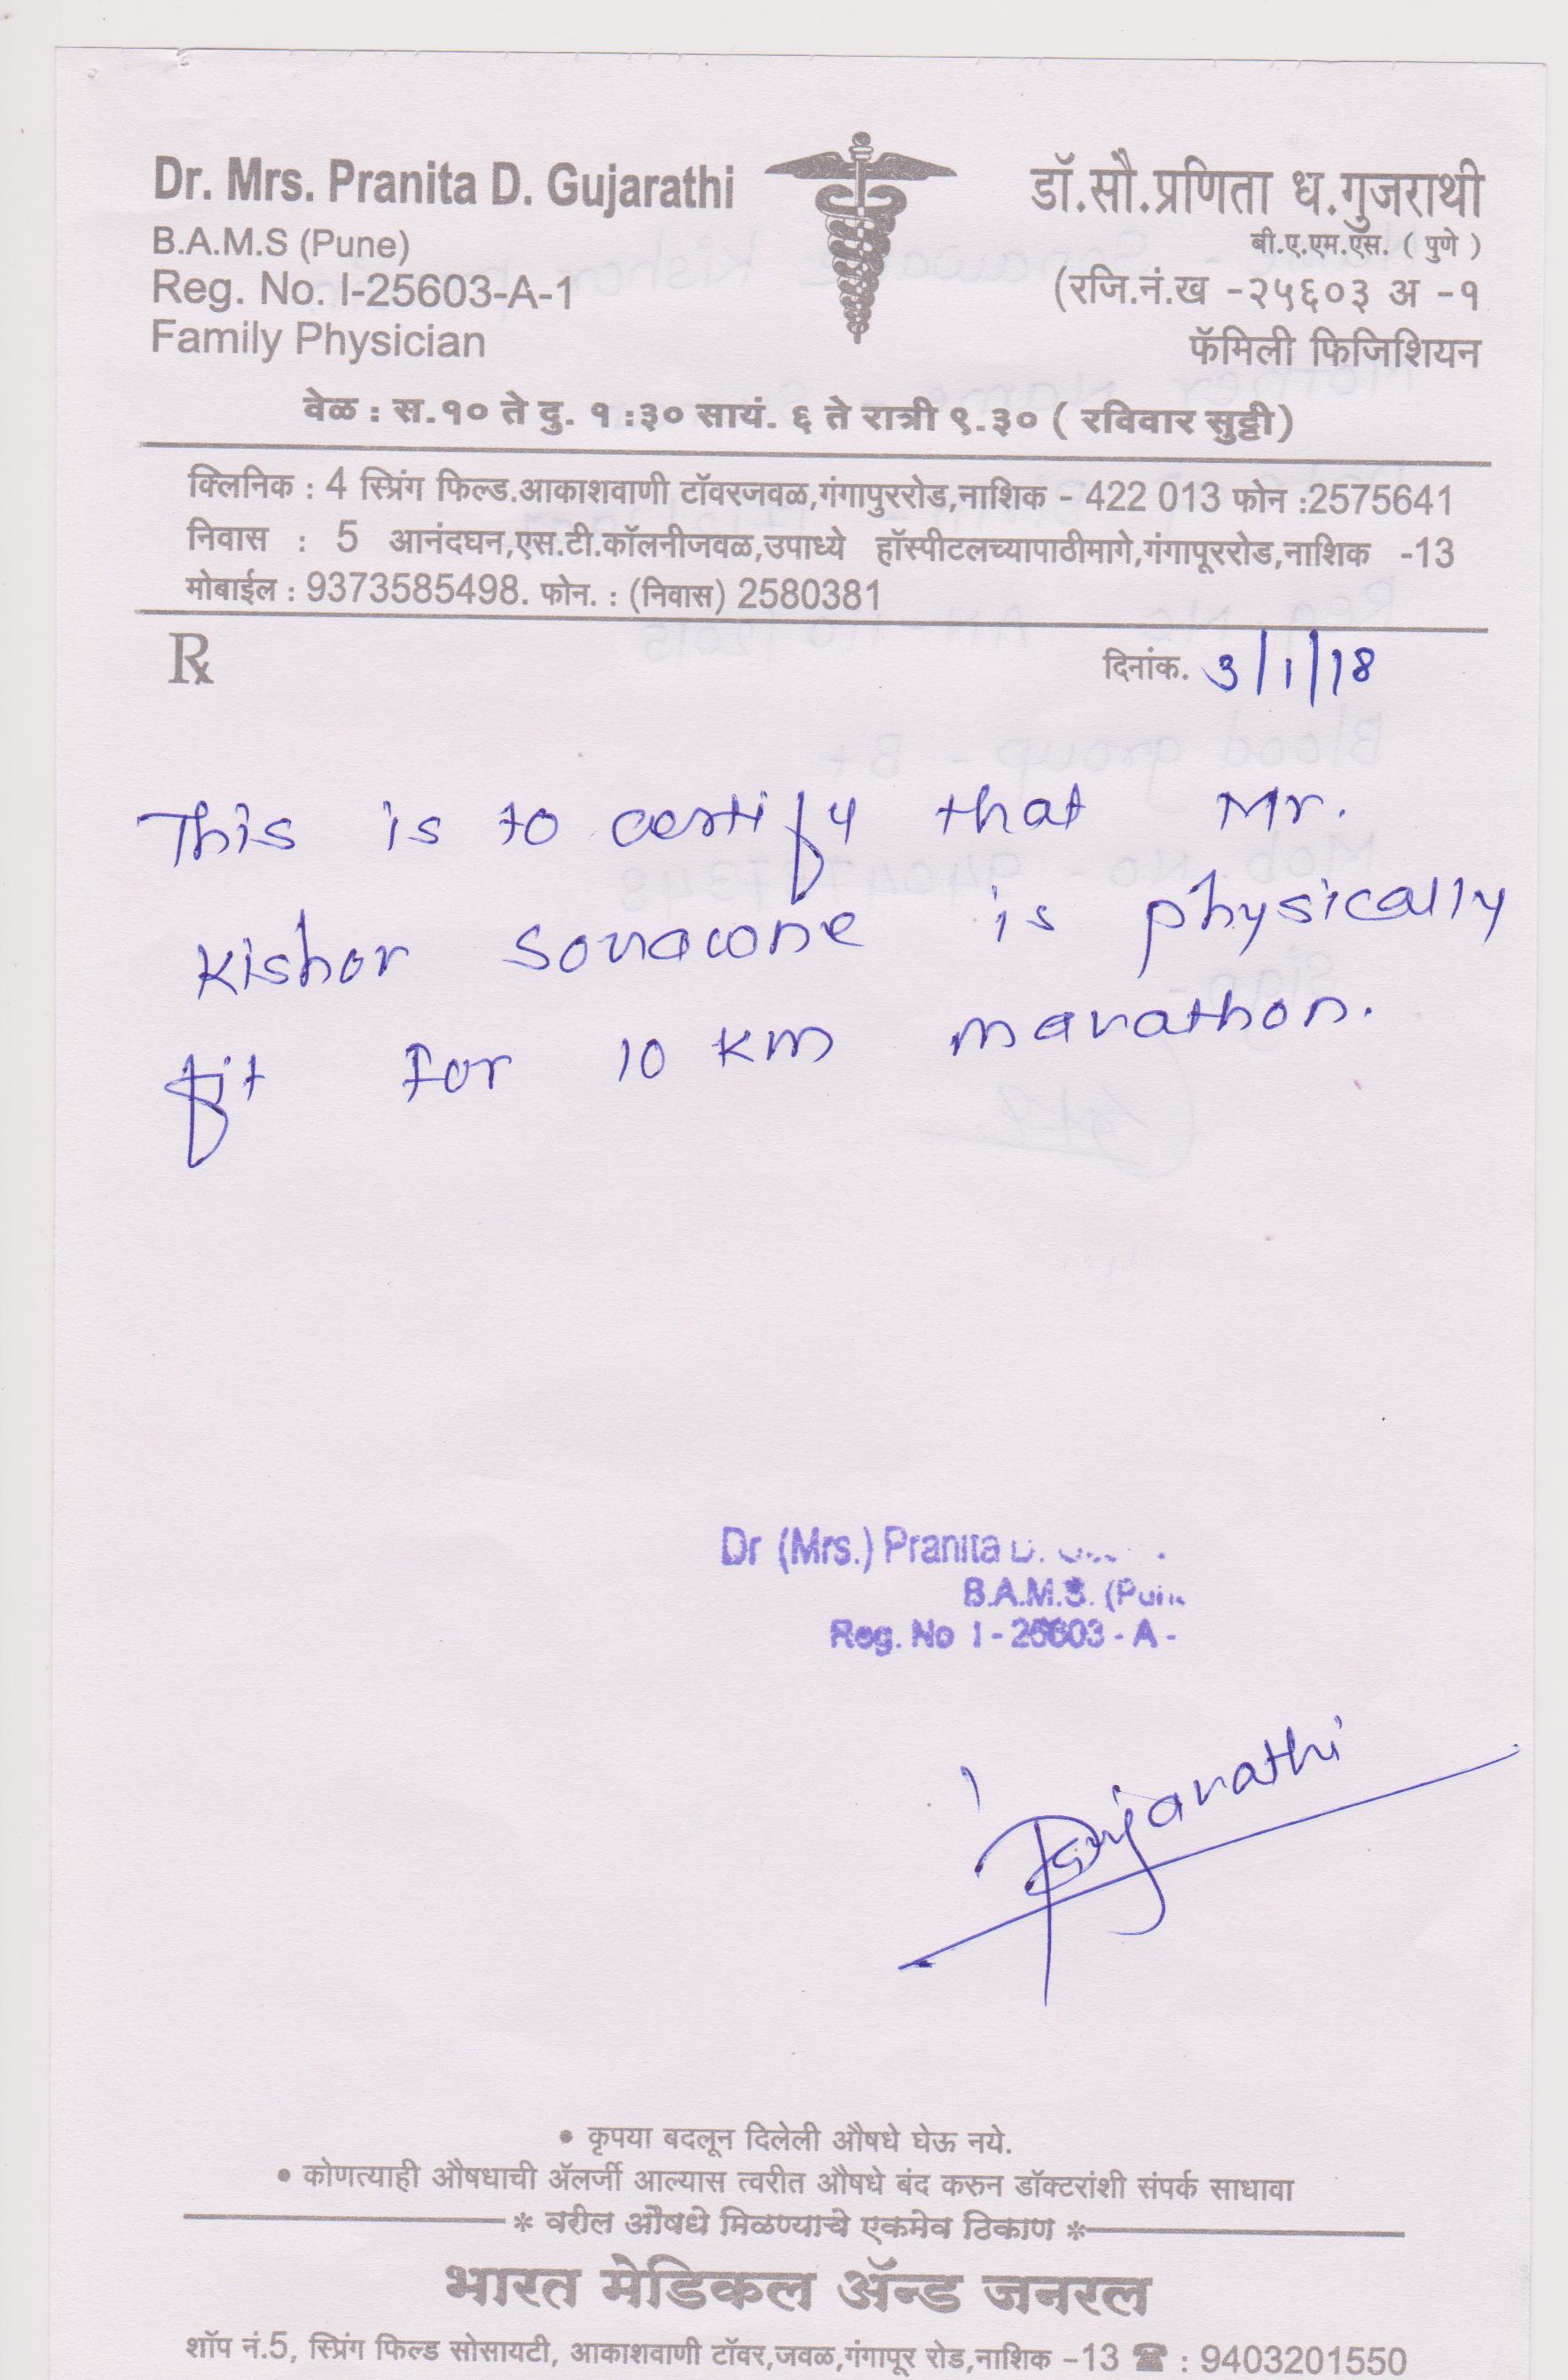 Dr. Mrs. Pranita D. Gujarathi
B.A.M.S (Pune)
Reg. No. I-25603-A-1
Family Physician
डॉ.सौ.प्रणिता ध.गुजराथी
बी.ए.एम.एस. ( पुणे )
(रजि.नं.ख -२५६०३ अ -१
फॅमिली फिजिशियन
वेळ : स.१० ते दु. १ :३० सायं. ६ ते रात्री ९.३० ( रविवार सुट्टी)
क्लिनिक : 4 स्प्रिंग फिल्ड.आकाशवाणी टॉवरजवळ,गंगापुररोड,नाशिक - 422 013 फोन :2575641
निवास : 5 आनंदघन,एस.टी.कॉलनीजवळ,उपाध्ये हॉस्पीटलच्यापाठीमागे,गंगापूररोड,नाशिक -13
मोबाईल : 9373585498. फोन. : (निवास) 2580381
℞
दिनांक. 3/1/18
This is to certify that Mr.
Kishor Sonawane is physically
fit For 10 KM marathon.
Dr (Mrs.) Pranita D.
B.A.M.S. (Pun
Reg. No I - 25603 - A -
Gujarathi
• कृपया बदलून दिलेली औषधे घेऊ नये.
• कोणत्याही औषधाची ॲलर्जी आल्यास त्वरीत औषधे बंद करुन डॉक्टरांशी संपर्क साधावा
* वरील औषधे मिळण्याचे एकमेव ठिकाण *
भारत मेडिकल ॲन्ड जनरल
शॉप नं.5, स्प्रिंग फिल्ड सोसायटी, आकाशवाणी टॉवर,जवळ,गंगापूर रोड,नाशिक -13 ☎ : 9403201550